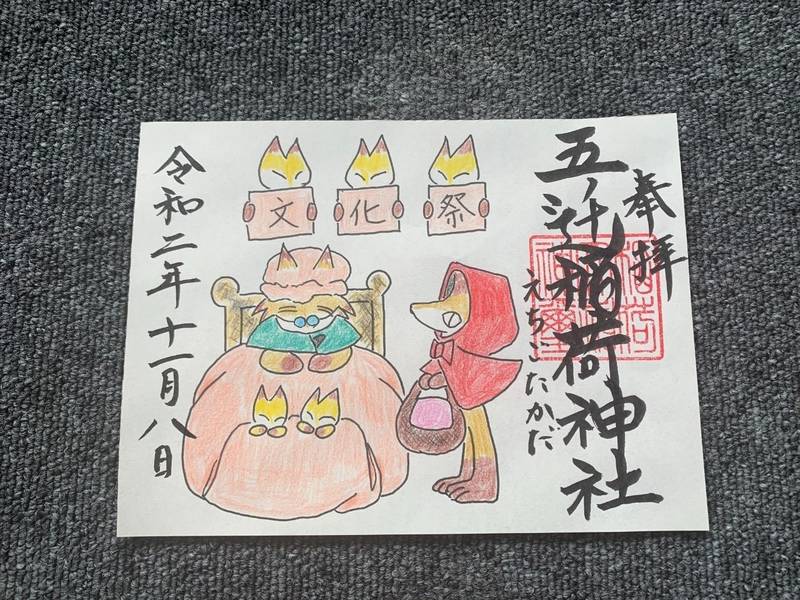 奉拝
五ノ辻稲荷神社
えちごたかだ
文化祭
令和二年十一月八日